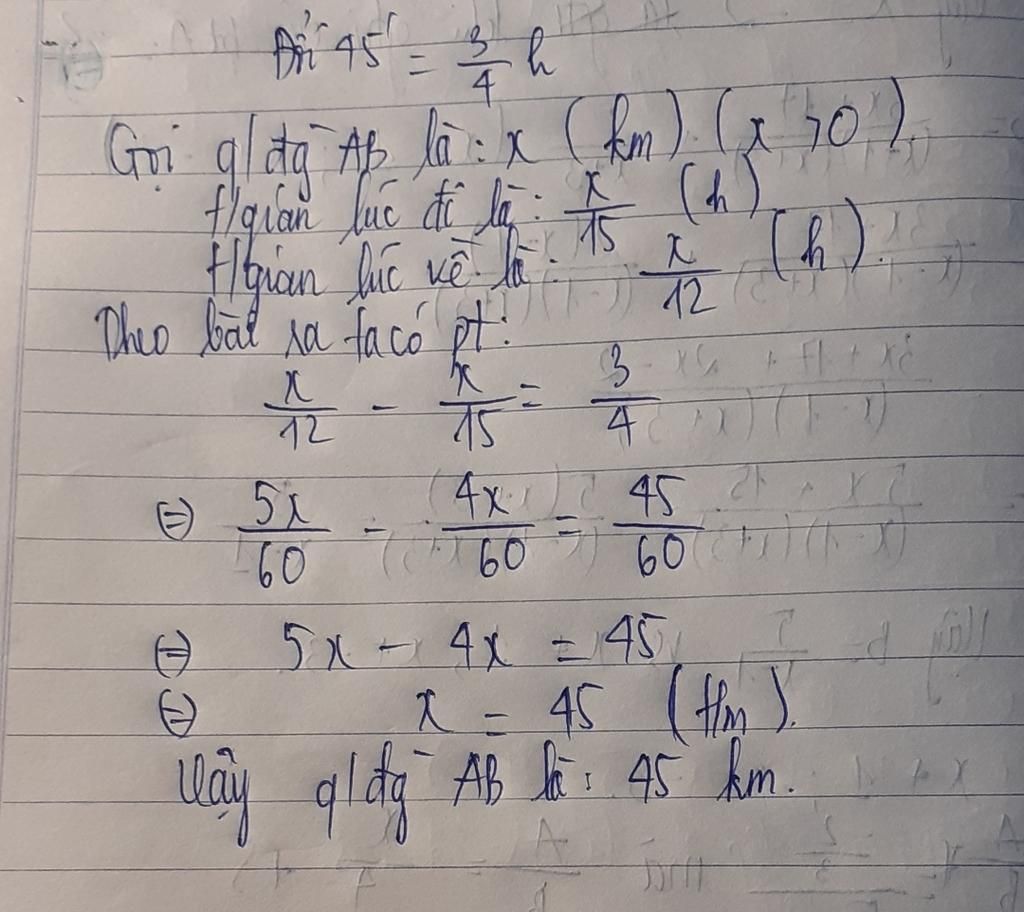 Đổi 45' = 3/4 h
Gọi q/đg AB là: x (km) (x > 0)
t/gian lúc đi là: x/15 (h)
t/gian lúc về là: x/12 (h).
Theo bài ra ta có pt:
x/12 - x/15 = 3/4
⇔ 5x/60 - 4x/60 = 45/60
⇔ 5x - 4x = 45
⇔ x = 45 (tm).
Vậy q/đg AB là: 45 km.